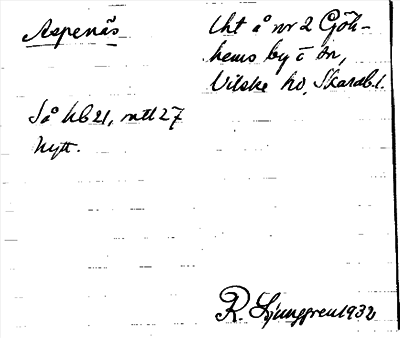 Aspenäs
lht å nr 2 Göt-
hems by i sn,
Vilske hd, Skarab.l.
Så hb 21, mtl 27
Nytt.
R. Ljunggren 1932